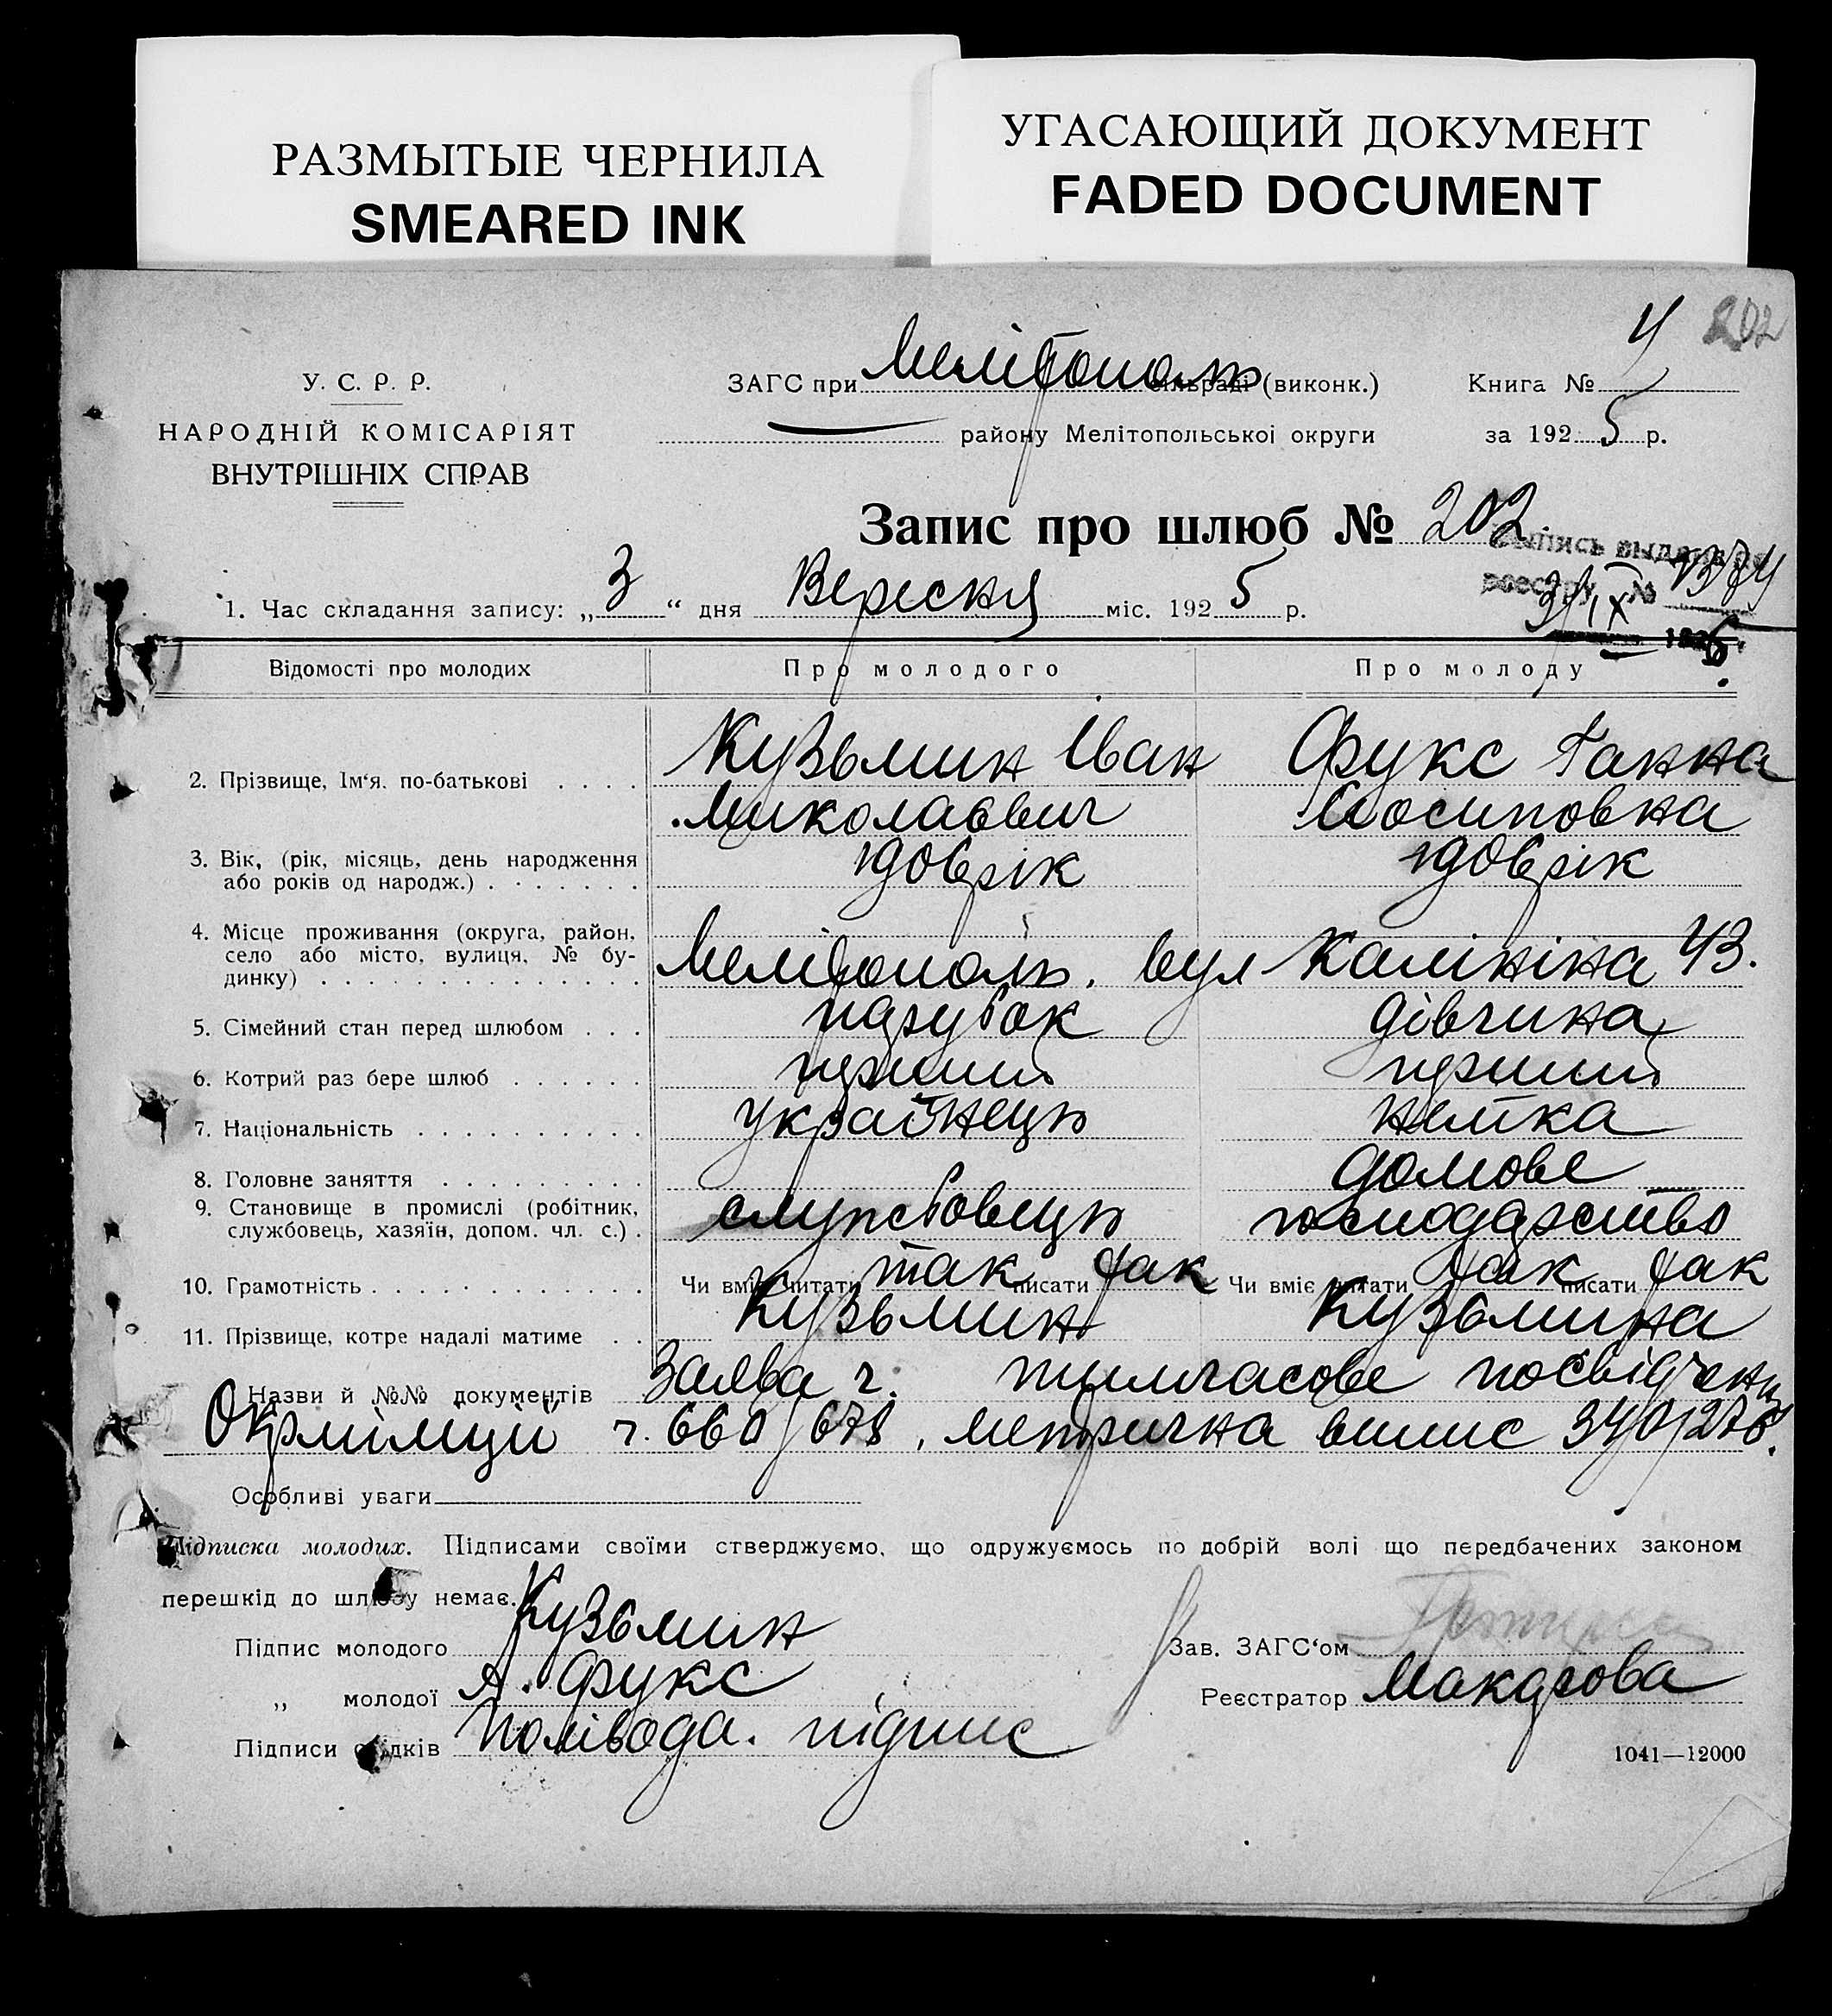 РАЗМЫТЫЕ ЧЕРНИЛА
SMEARED INK
УГАСАЮЩИЙ ДОКУМЕНТ
FADED DOCUMENT
202
У. С. Р. Р.
НАРОДНІЙ КОМІСАРІЯТ
ВНУТРІШНІХ СПРАВ
ЗАГС при Мелітополь сільраді (виконк.)
Книга № 4
району Мелітопольської округи
за 1925 р.
Запис про шлюб № 202
Выпись выдана
реестру № 1374
3/IX 1925
1. Час складання запису: „3“ дня Вересня міс. 1925 р.
Відомості про молодих Про молодого Про молоду
2. Прізвище, Ім‘я, по-батькові Кузьмин Іван Фукс Ганна
Миколаєвич Йосиповна
3. Вік, (рік, місяць, день народження
або років од народж.)
4. Місце проживання (округа, район,
село або місто, вулиця, № бу-
динку) Мелітополь, вул Калініна 43.
5. Сімейний стан перед шлюбом парубок дівчина
6. Котрий раз бере шлюб перший перший
7. Національність українець немка
8. Головне заняття домове
9. Становище в промислі (робітник,
службовець, хазяїн, допом. чл. с.) службовець господарство
10. Грамотність Чи вміє читати так писати так Чи вміє читати так писати так
11. Прізвище, котре надалі матиме Кузьмин Кузьмина
Назви й №№ документів Заява г. тимчасове посвідчення
Окрміліції г. 660/678, метрична випис 340/276.
Особливі уваги
Підписка молодих. Підписами своїми стверджуємо, що одружуємось по добрій волі що передбачених законом
перешкід до шлюбу немає.
Підпис молодого Кузьмин
Зав. ЗАГС‘ом
„ молодої А. Фукс
Реєстратор Макарова
Підписи свідків Полівода. підпис
1041—12000